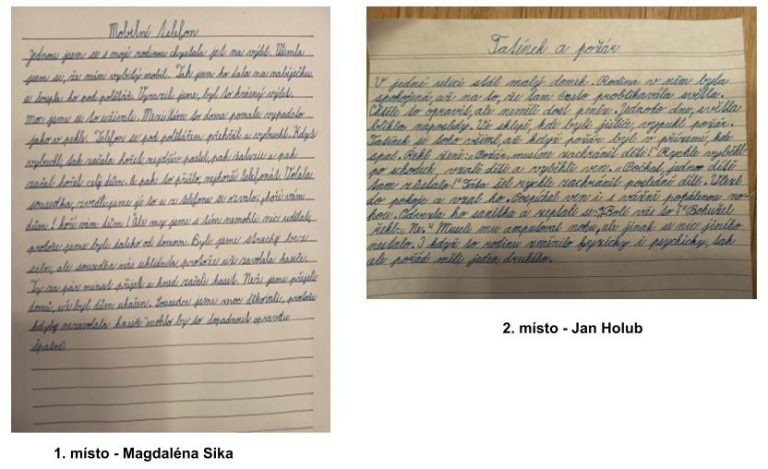 Mobilní telefon
Jednou jsem se s mojí rodinou chystala jet na výlet. Všimla
jsem se, že mám vybitý mobil. Tak jsem ho dala na nabíječku
a šoupla ho pod polštář. Vyrazili jsme, byl to krásný výlet.
Moc jsme se to užívali. Mezitím to doma pomalu vypadalo
jako v pekle. Telefon se pod polštářem přehřál a vybouchl. Když
vybouchl, tak začala hořet nejdřív postel, pak žaluzie a pak
začal hořet celý dům. A pak to přišlo, nejhorší telefonát. Volala
sousedka, zvedli jsme jí to a z telefonu se ozvalo: „hoří vám
dům! hoří vám dům! Ale my jsme s tím nemohli nic udělat,
protože jsme byli daleko od domova. Byli jsme strachy bez
sebe, ale sousedka nás uklidnila, protože už zavolala hasiče.
Ty za pár minut přijeli a hned začali hasit. Než jsme přijeli
domů, už byl dům uhašen. Sousedce jsme moc děkovali, protože
kdyby nezavolala hasiče mohlo by to dopadnout opravdu
špatně.
1. místo - Magdaléna Sika
Tatínek a požár
V jedné ulici stál malý domek. Rodina v něm byla
spokojená, až na to, že tam často problikávala světla.
Chtěli to opravit, ale neměli dost peněz. Jednoho dne, světla
blikla naposledy. Ve sklepě, kde byli jističe, vypukl požár.
Tatínek se toho všiml, až když požár byl v přízemí, kde
spal. Řekl ženě: „Požár, musíme zachránit děti!" Rychle vyběhli
po schodech, vzali děti a vyběhli ven. „Počkat, jedno dítě
tam zůstalo!" Táta šel rychle zachránit poslední dítě. Vlezl
do pokoje a vzal ho. Pospíchal ven i s vážně popálenou no-
hou. Odvezla ho sanitka a zeptali se: „Bolí vás to!" Bohužel
řekl: „Ne." Museli mu amputovat nohu, ale jinak se nic jiného
nestalo. I když to rodinu zničilo fyzicky i psychicky, tak
ale pořád měli jeden druhého.
2. místo - Jan Holub